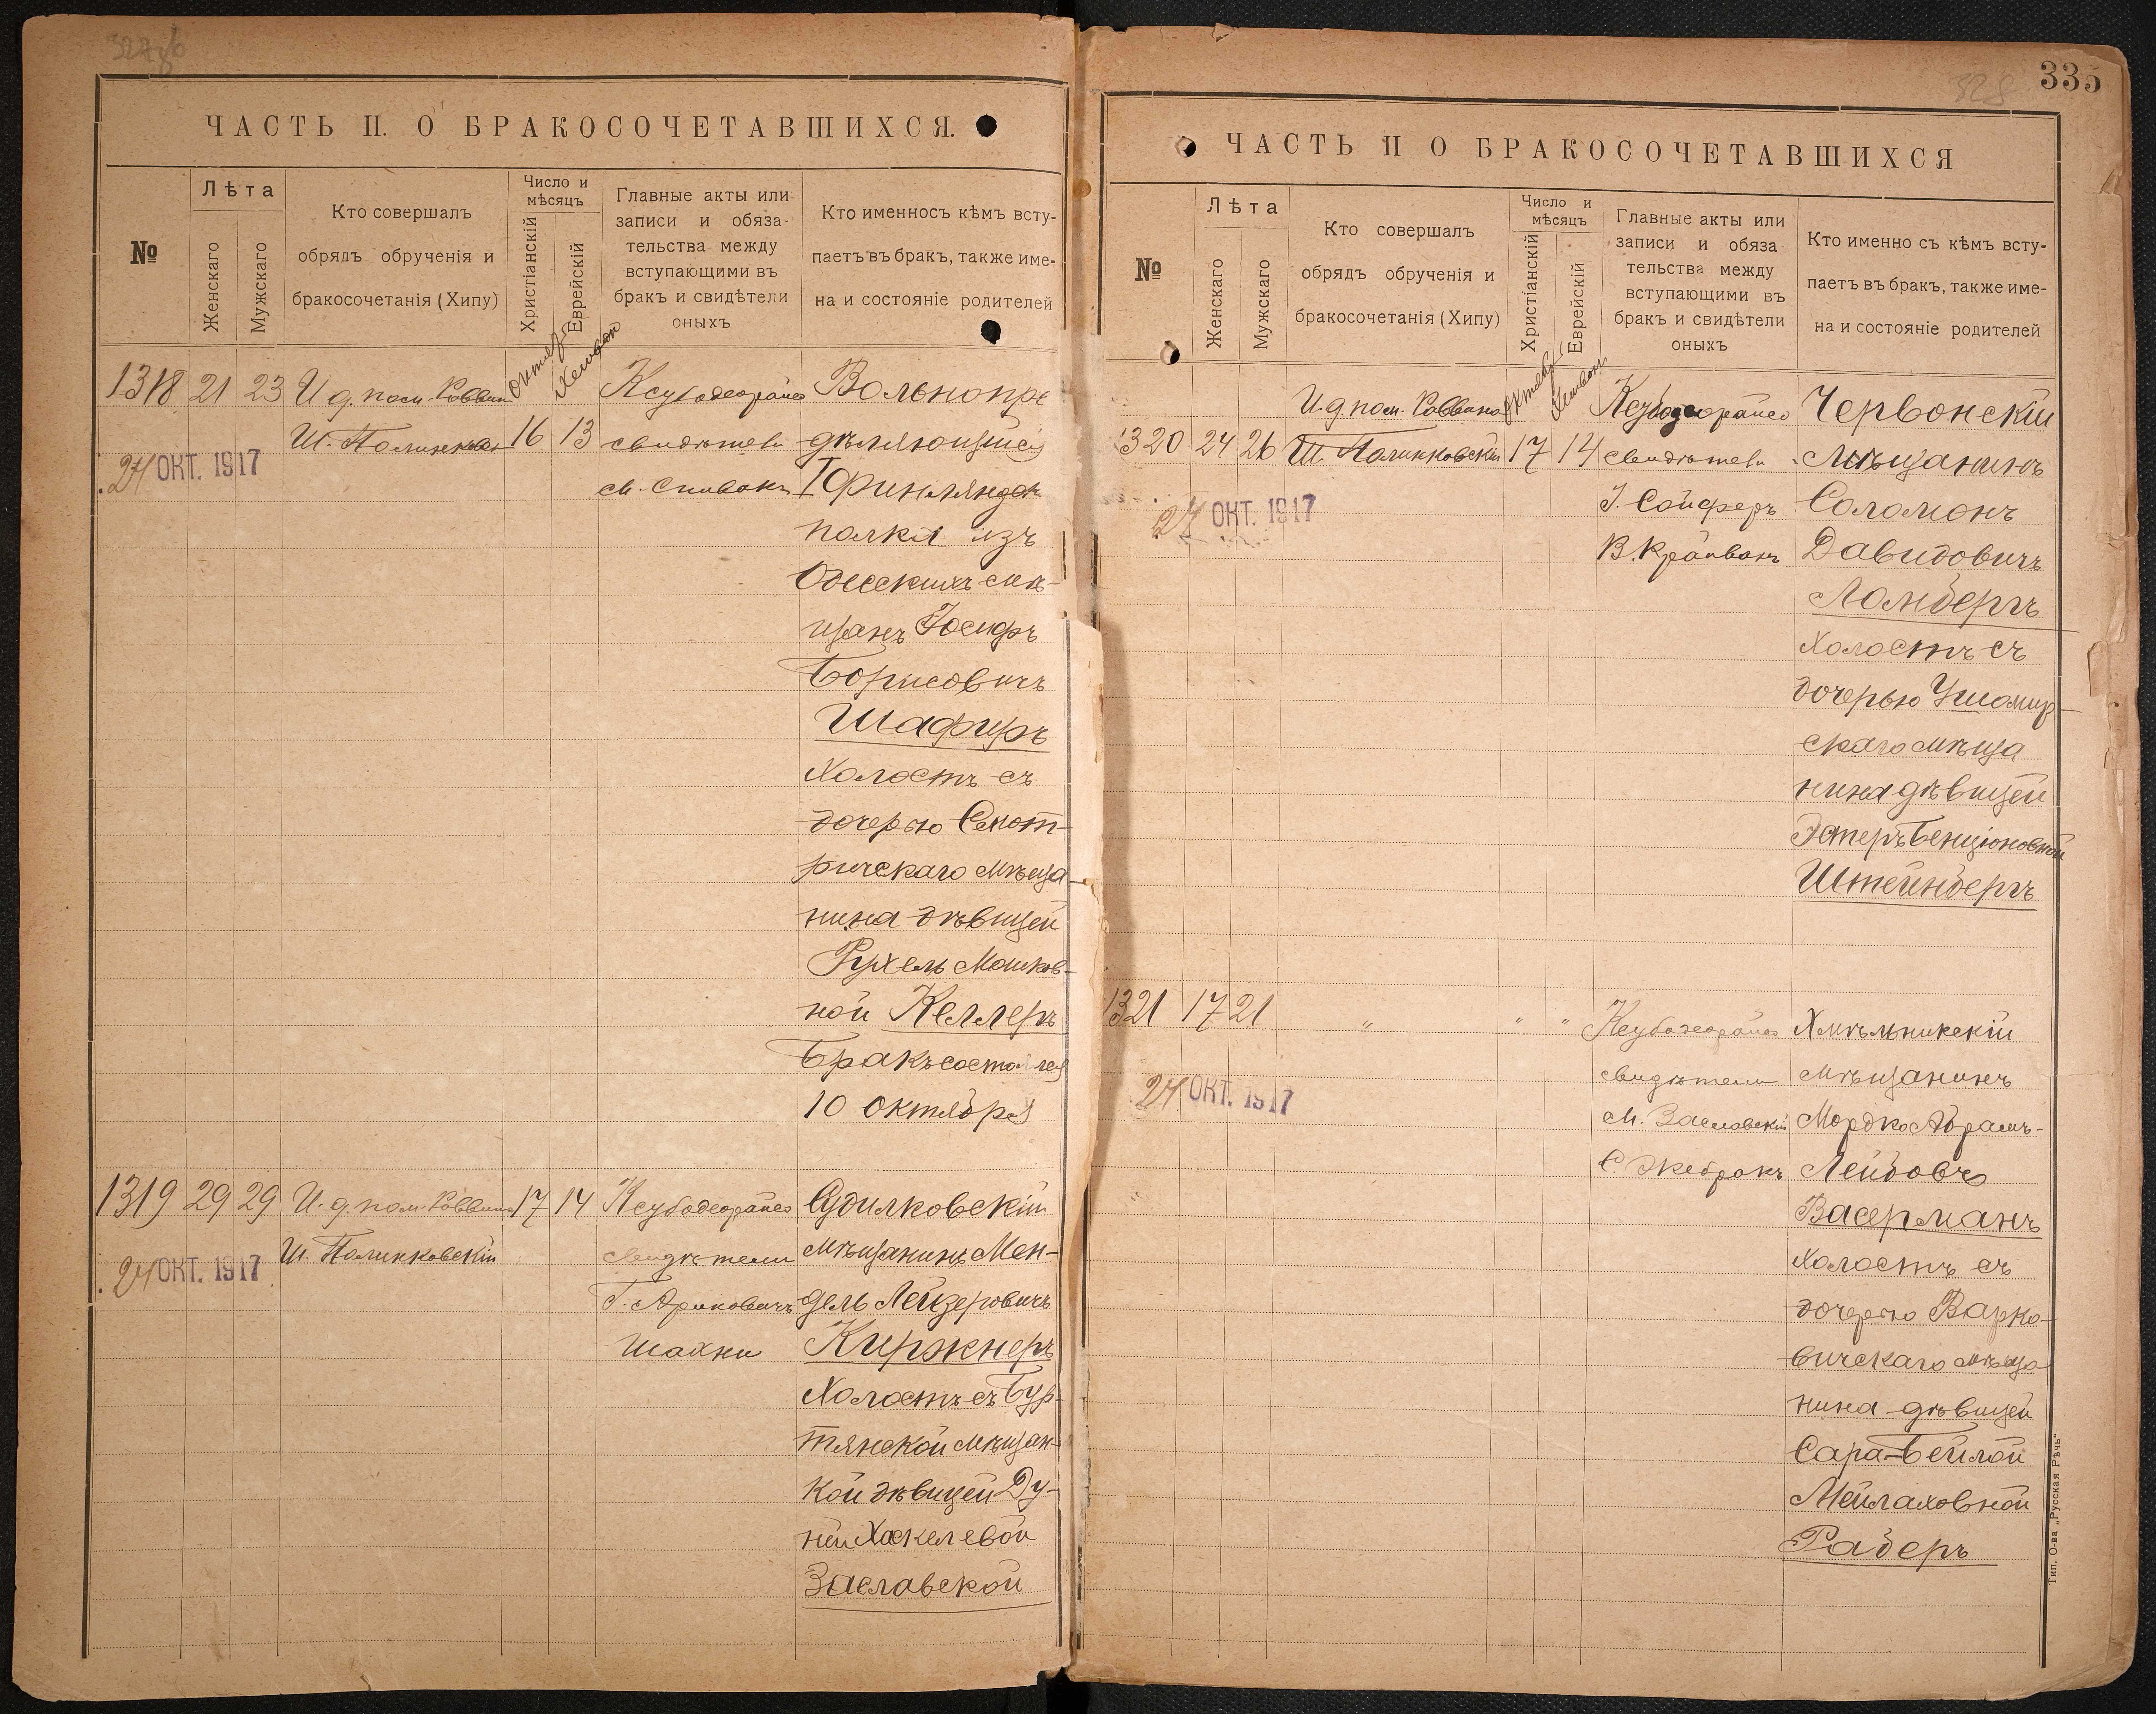 ЧАСТЬ II. О БРАКОСОЧЕТАВШИХСЯ.
№
Лѣта
Женскаго
Мужскаго
Кто совершалъ
обрядъ обрученія и
бракосочетанія (Хипу)
Число и
мѣсяцъ
Христіанскій
Еврейскій
Главные акты или
записи и обяза-
тельства между
вступающими въ
бракъ и свидѣтели
оныхъ
Кто именносъ кѣмъ всту-
паетъ въ бракъ, также име-
на и состояніе родителей
1318 21 23
И. д. пом. Раввин
Ш. Полинков
16 13
свидѣтели
М. Спивакъ
Вольнопре
дѣляющійся
I Финляндск
полка изъ
Одесскихъ мѣ-
щанъ Іосифъ
Борисовичъ
Шафиръ
Холостъ съ
дочерью Смот-
ричскаго мѣща-
нина дѣвицей
Рухель Мошков-
ной Келлеръ
Бракъ состоялся
10 Октября
24 ОКТ. 1917
1319 29 29
И. д. пом. Раввина
Ш. Полинковскій
17 14
свидѣтели
Г. Ариковичъ
Шахни
Судилковскій
мѣщанинъ Мен-
дель Лейзеровичъ
Киржнеръ
Холостъ съ Бур-
тянской мѣщан-
кой дѣвицей Ду-
ней Хаскелевой
Заславской
24 ОКТ. 1917
335
328
ЧАСТЬ II О БРАКОСОЧЕТАВШИХСЯ
№
Лѣта
Женскаго
Мужскаго
Кто совершалъ
обрядъ обрученія и
бракосочетанія (Хипу)
Число и
мѣсяцъ
Христіанскій
Еврейскій
Главные акты или
записи и обяза
тельства между
вступающими въ
бракъ и свидѣтели
оныхъ
Кто именно съ кѣмъ всту-
паетъ въ бракъ, также име-
на и состояніе родителей
1320 24 26
И. д. пом. Раввина
Ш. Полинковскій
17 14
свидѣтели
І. Сойферъ
В. Крайванъ
Червонскій
мѣщанинъ
Соломонъ
Давидовичъ
Ломбергъ
Холостъ съ
дочерью Ушомир-
скаго мѣща
нина дѣвицей
Эстеръ Бенціоновной
Штейнбергъ
24 ОКТ. 1917
1321 17 21
" " "
свидѣтели
М. Заславскій
С. Жебракъ
Хмѣльникскій
мѣщанинъ
Мордко Абрамъ-
Лейбовъ
Васерманъ
Холостъ съ
дочерью Варко-
вичскаго мѣща
нина дѣвицей
Сара-Бейлой
Мейлаховной
Раберъ
24 ОКТ. 1917
Тип. О-ва „Русская Рѣчь"